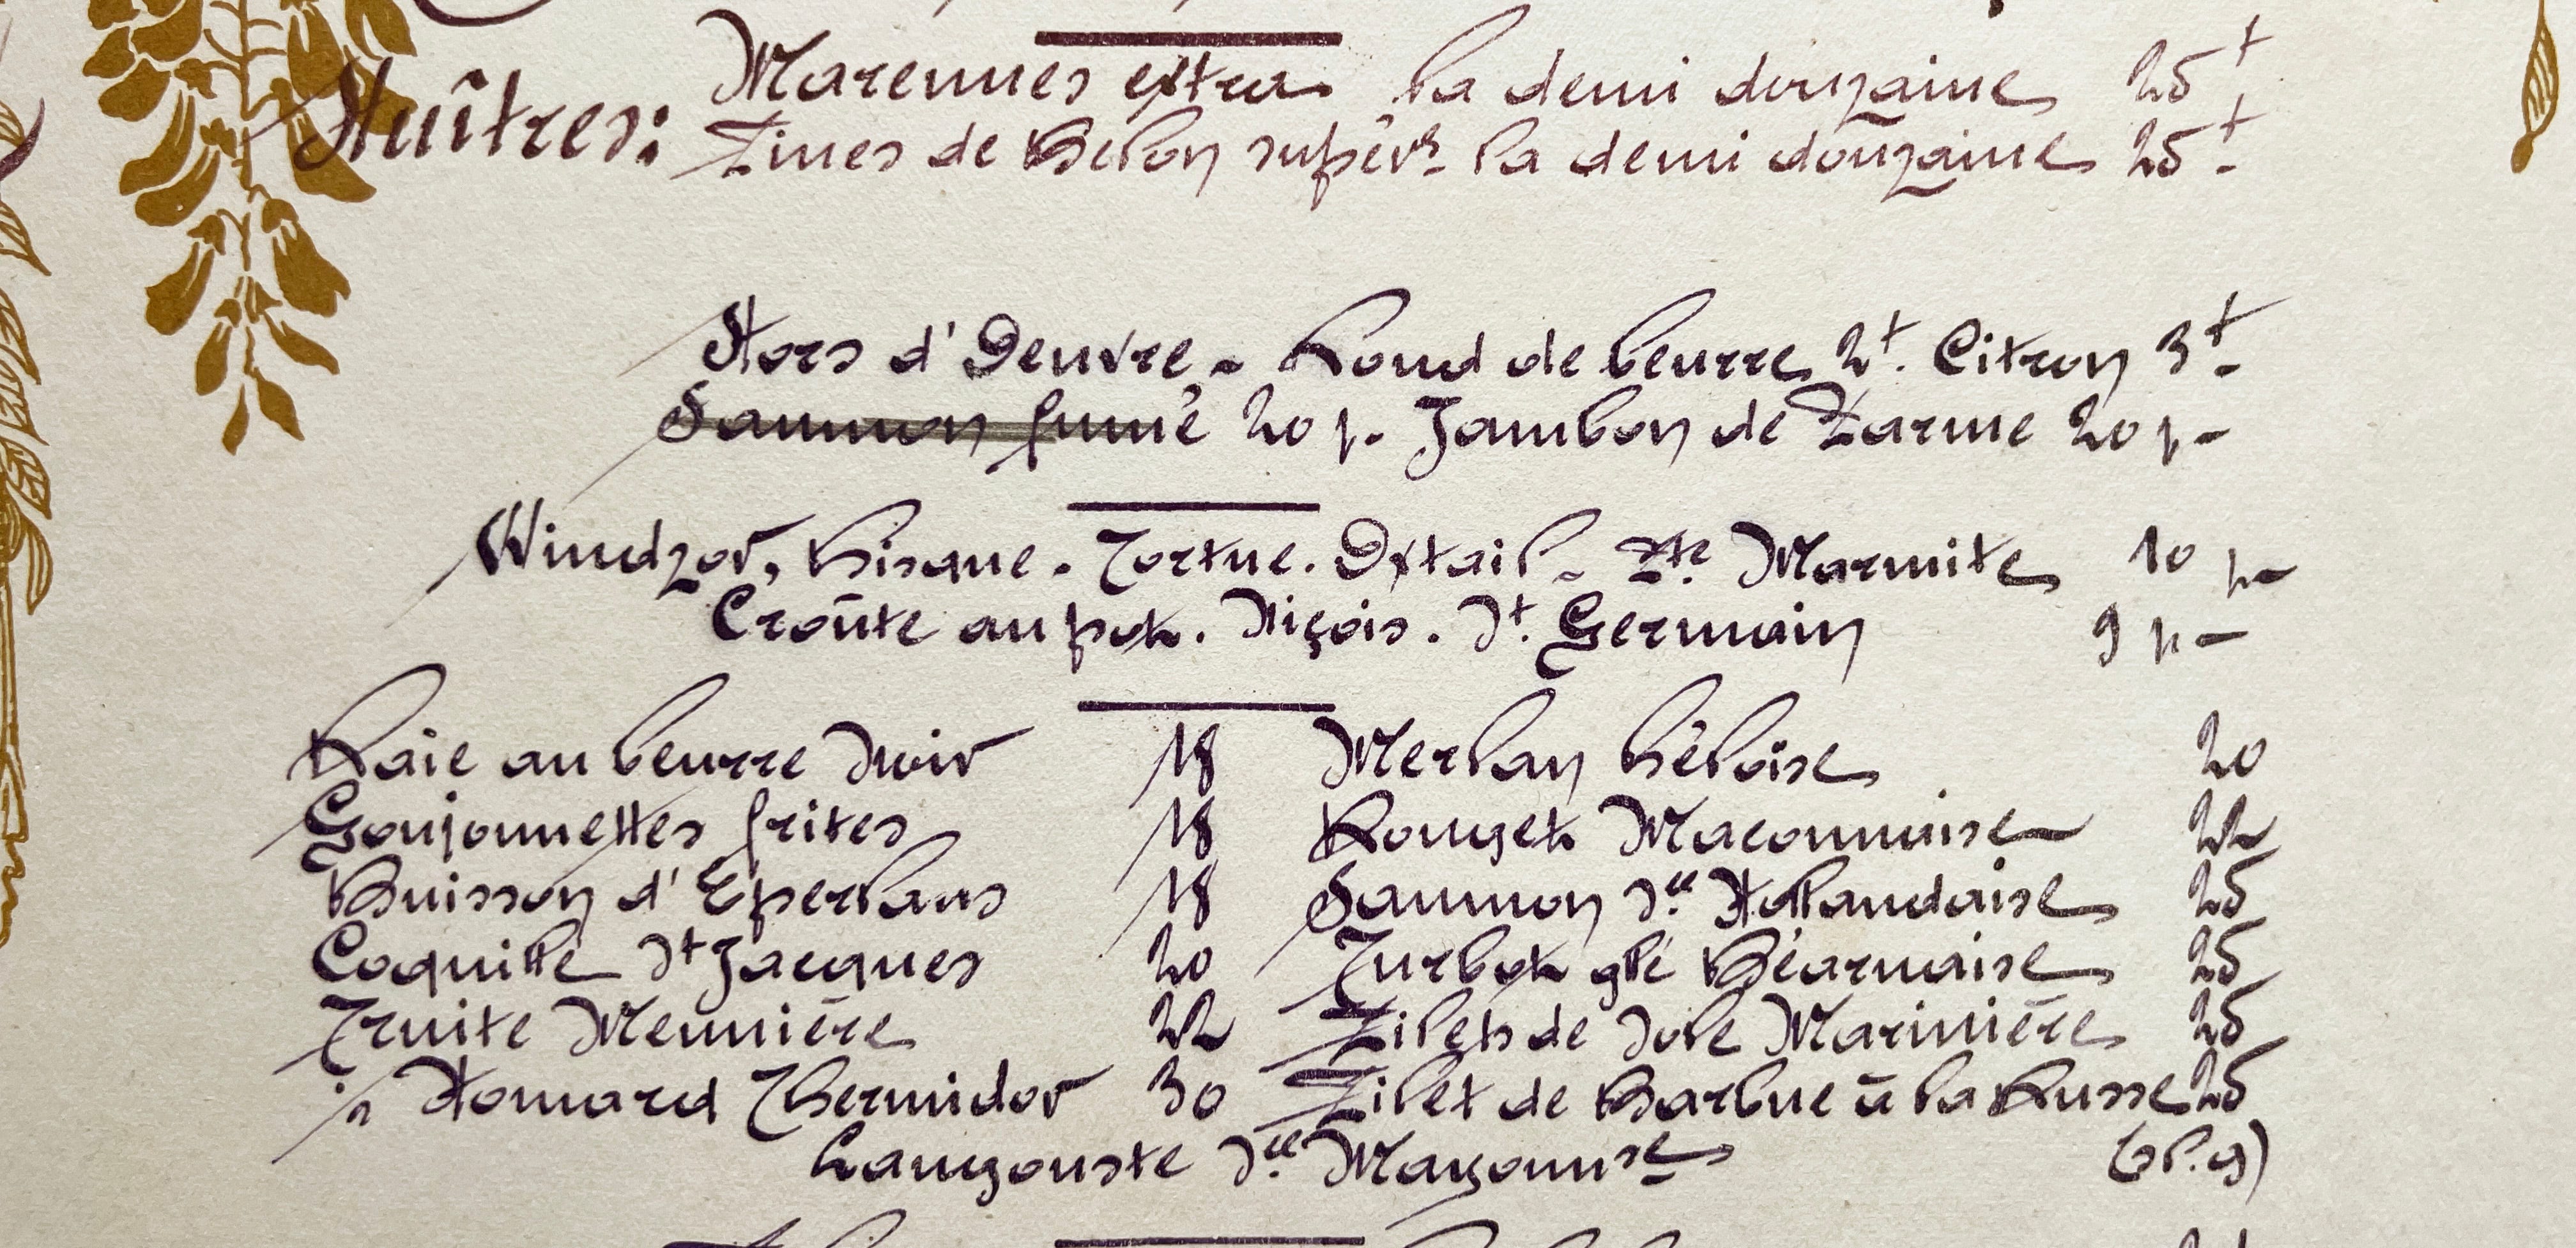 Huîtres: Marennes extra. la demi douzaine 25 f
Fines de Belon supérs. la demi douzaine 25 f.
Hors d'Oeuvre. Rond de beurre 2f. Citron 3f.
Saumon fumé 20 f. Jambon de Parme 20 f.
Windzor, Bisque. Tortue. Oxtail. Pte Marmite 10 f.
Croûte au pot. Niçois. St. Germain 9 f.
Raie au beurre Noir 18 Merlan Héloïse 20
Goujonnettes frites 18 Rouget Maconnaise 22
Buisson d'Eperlans 18 Saumon Sce Hollandaise 25
Coquille St Jacques 20 Turbot glé Béarnaise 25
Truite Meunière 22 Filets de Sole Marinière 25
½ Homard Thermidor 30 Filet de Barbue à la Russe 25
Langouste Sce Mayonnse (sl. g)